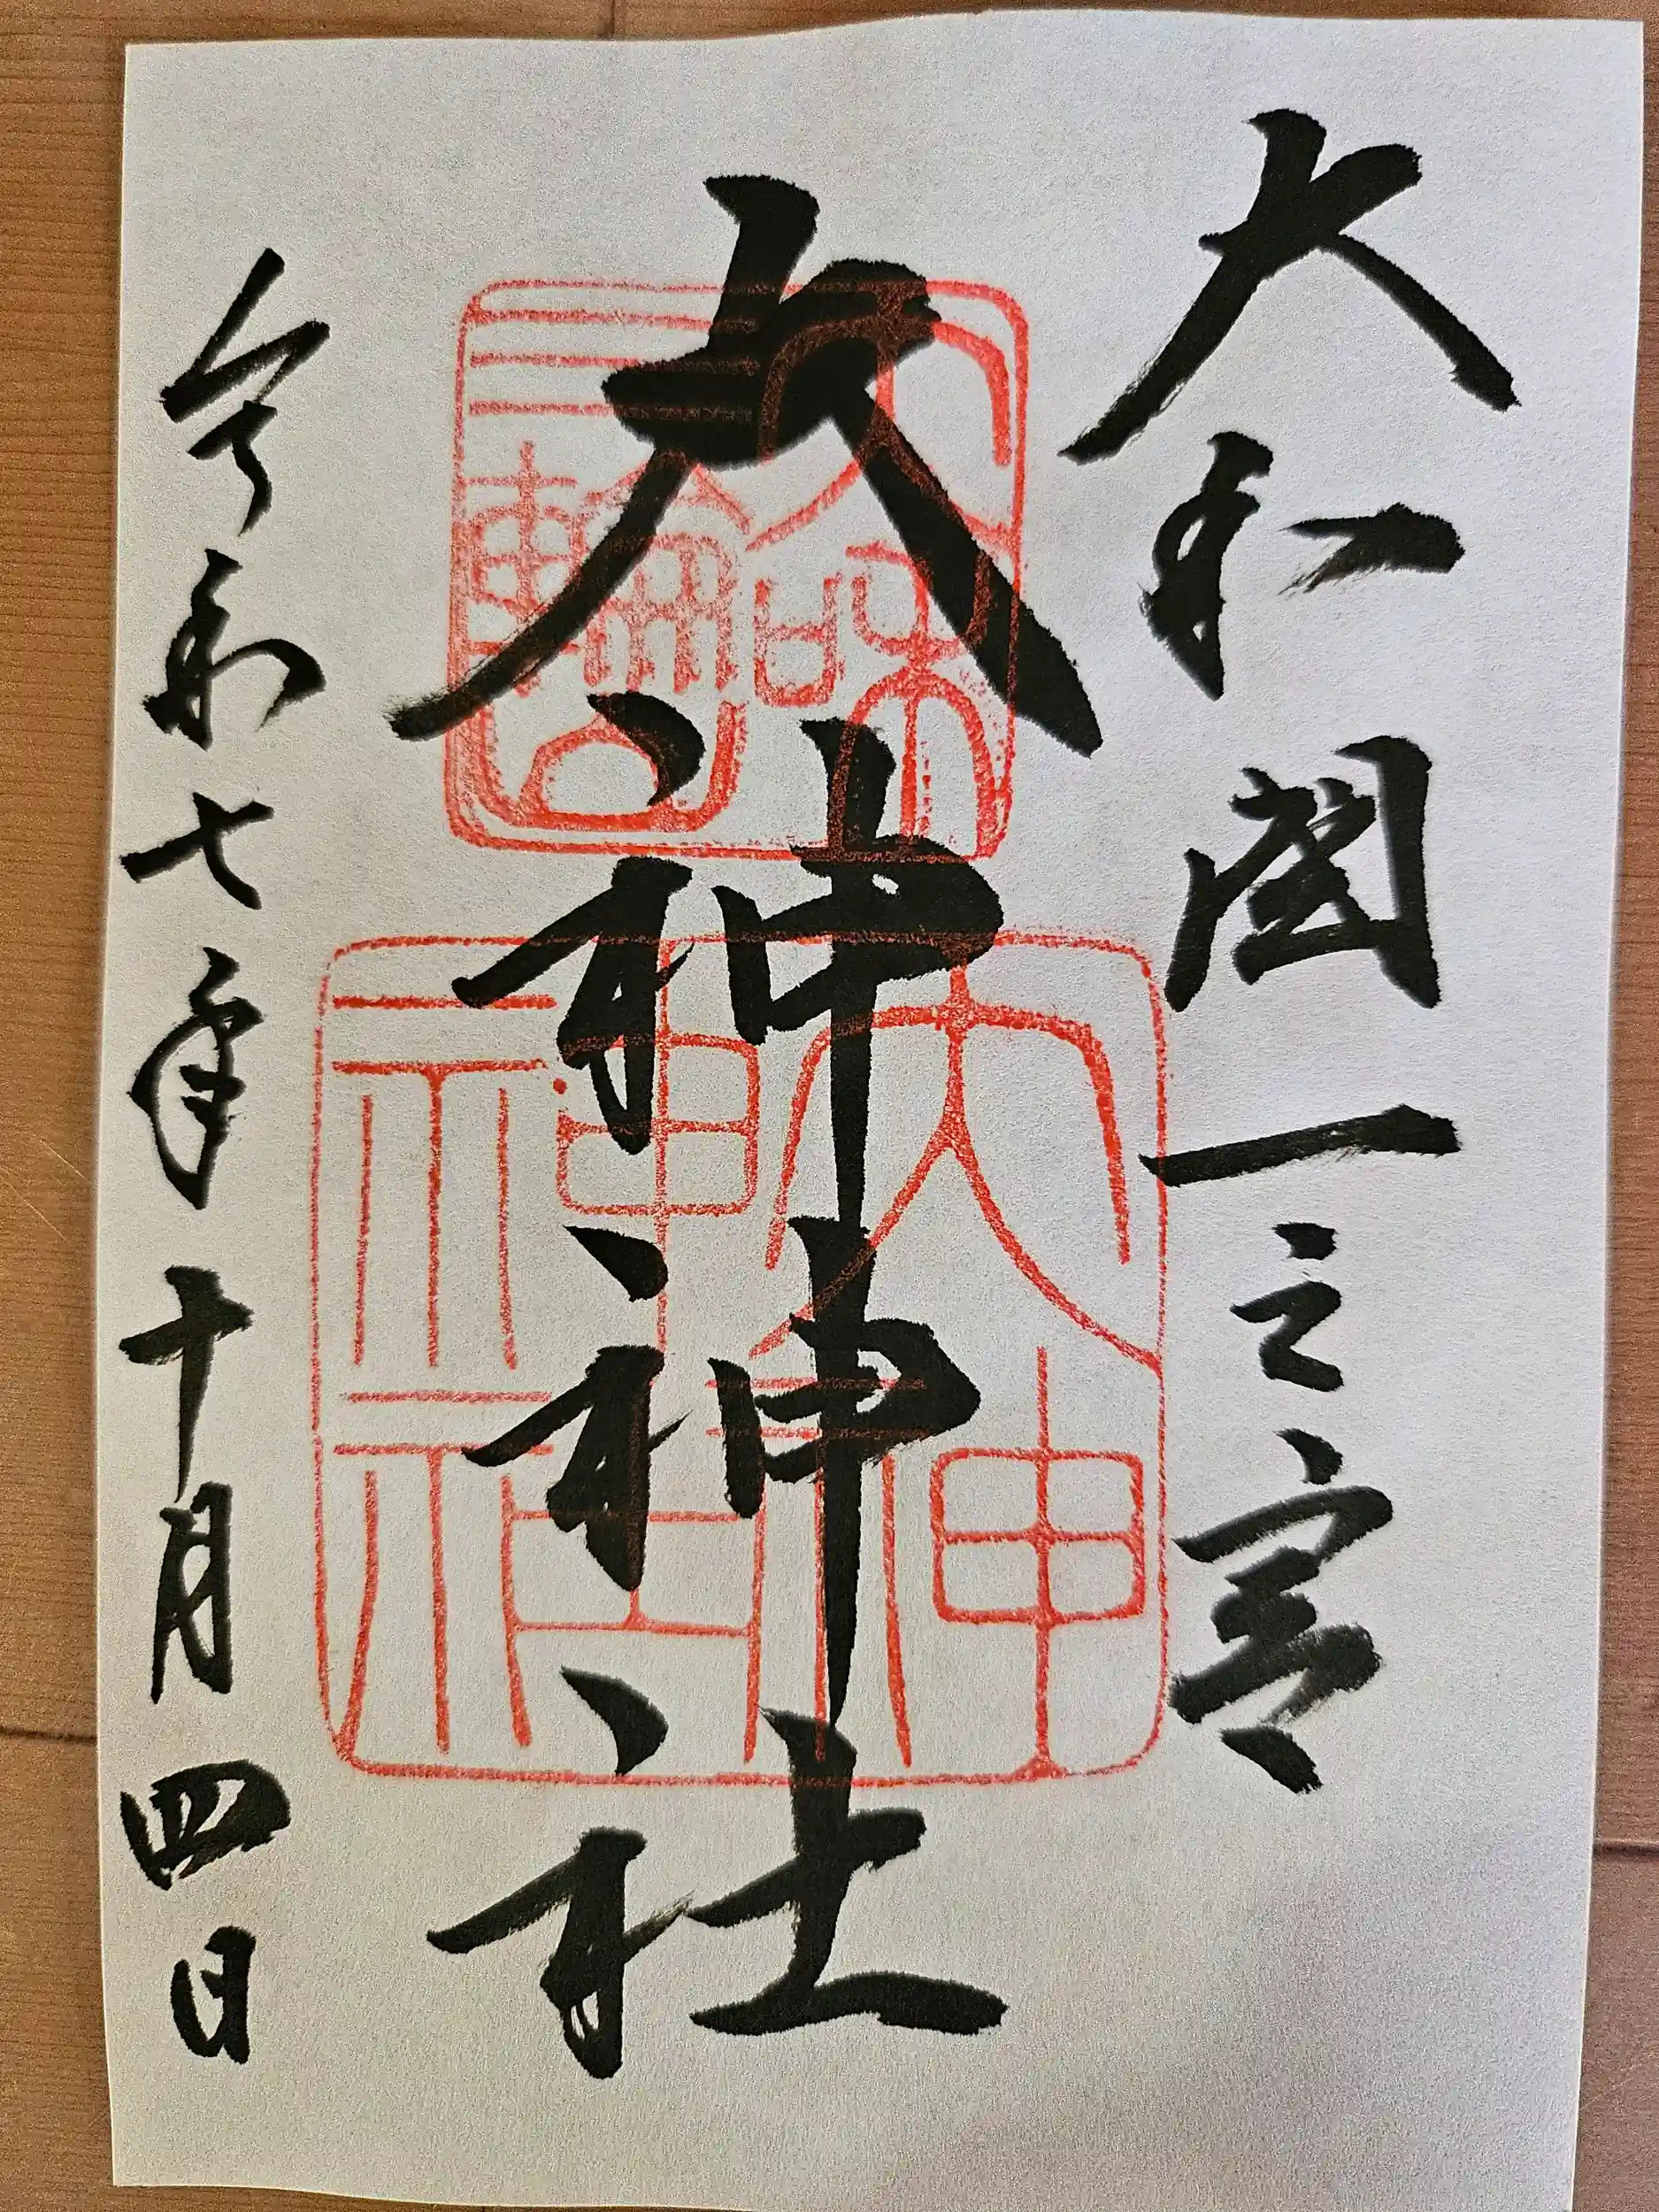 大和國一之宮
大神神社
令和七年十月四日
大和
三輪山
大神
神社